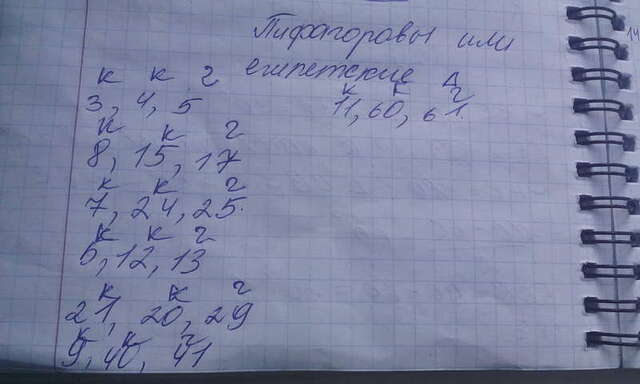 Пифагоровы или
египетские Δ
к к г
3, 4, 5
к к г
11, 60, 61.
к к г
8, 15, 17
к к г
7, 24, 25.
к к г
5, 12, 13
к к г
21, 20, 29
к к г
9, 40, 41